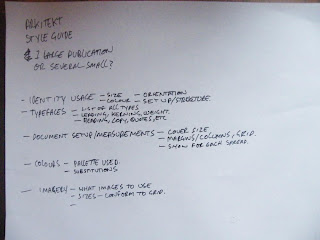 ARKITEKT
STYLE GUIDE
1 LARGE PUBLICATION
OR SEVERAL SMALL?
- IDENTITY USAGE - SIZE - ORIENTATION
- COLOUR - SET UP/STRUCTURE.
- TYPEFACES - LIST OF ALL TYPES
- LEADING, KERNING, WEIGHT.
- HEADING, COPY, QUOTES, ETC
- DOCUMENT SETUP/MEASUREMENTS - COVER SIZE
- MARGINS/COLUMNS, GRID.
- SHOW FOR EACH SPREAD.
- COLOURS - PALETTE USED.
- SUBSTITUTIONS
- IMAGERY - WHAT IMAGES TO USE
- SIZES - CONFORM TO GRID.
-